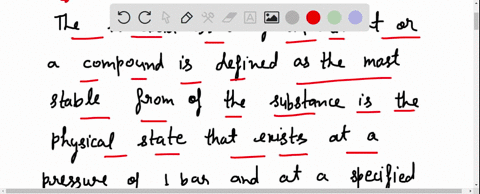 The or
a compound is defined as the most
stable from of the substance is the
physical state that exists at a
pressure of 1 bar and at a specified